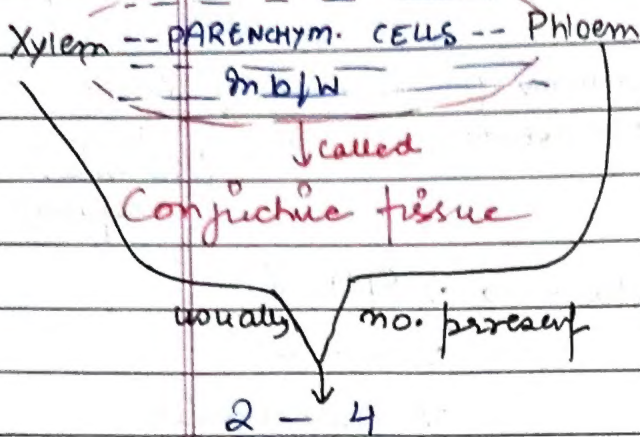 Xylem -- PARENCHYM. CELLS -- Phloem
in b/w
↓ called
Conjuctive tissue
usually no. present
2 - 4